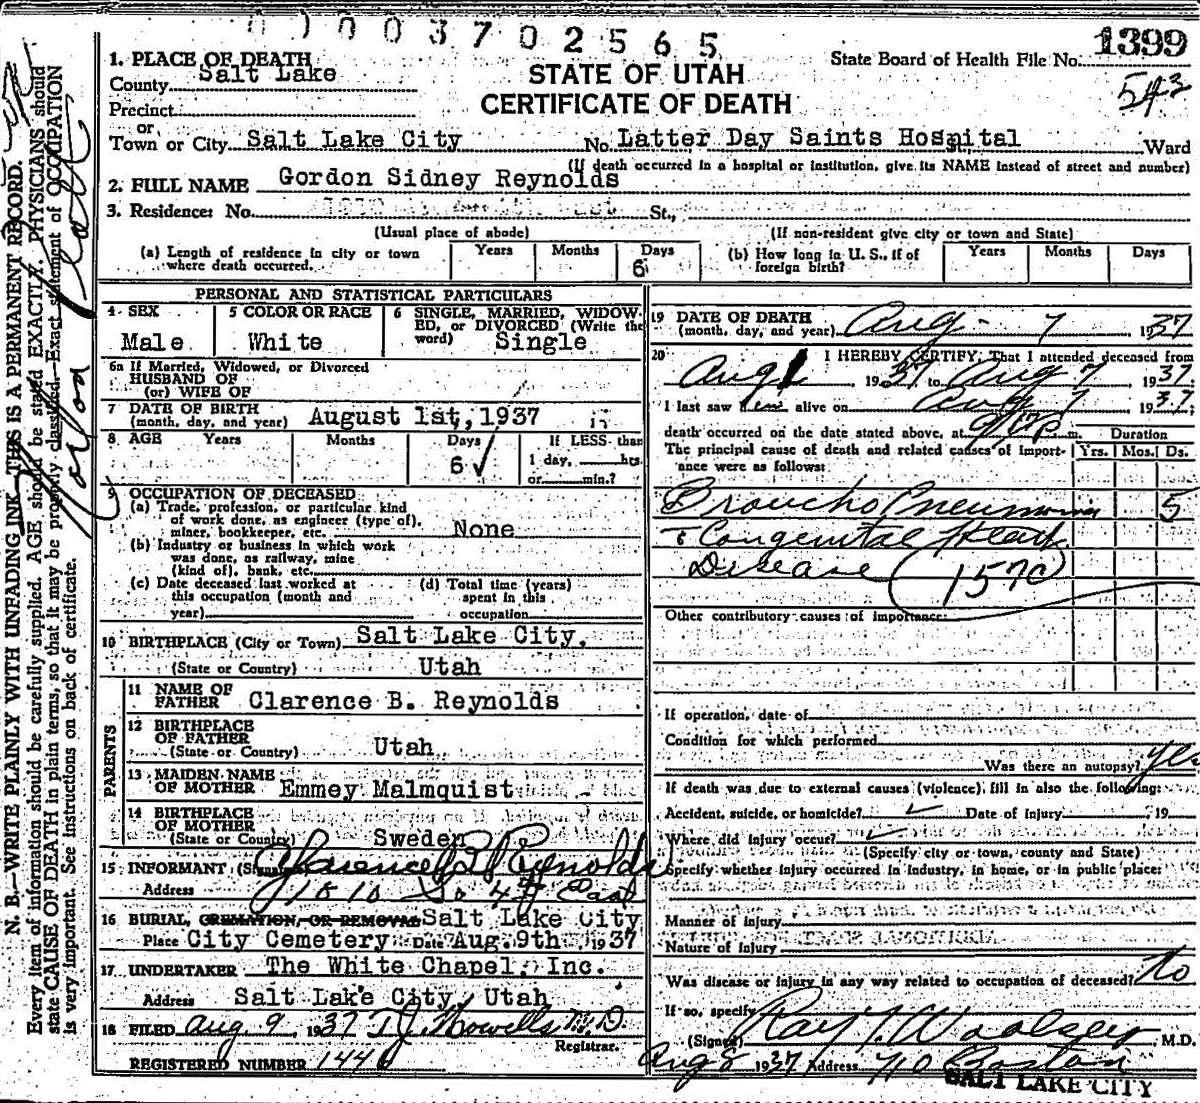 003702565
1399
543
1. PLACE OF DEATH
State Board of Health File No.
County Salt Lake
STATE OF UTAH
Precinct
CERTIFICATE OF DEATH
or
Town or City Salt Lake City No. Latter Day Saints Hospital St., Ward
(If death occurred in a hospital or institution, give its NAME instead of street and number)
2. FULL NAME Gordon Sidney Reynolds
3. Residence: No. St.,
(Usual place of abode) (If non-resident give city or town and State)
(a) Length of residence in city or town where death occurred. Years Months Days 6
(b) How long in U. S., if of foreign birth? Years Months Days
PERSONAL AND STATISTICAL PARTICULARS
4 SEX Male
5 COLOR OR RACE White
6 SINGLE, MARRIED, WIDOWED, or DIVORCED (Write the word) Single
6a If Married, Widowed, or Divorced
HUSBAND OF
(or) WIFE OF
7 DATE OF BIRTH
(month, day, and year) August 1st, 1937
8 AGE Years Months Days 6 If LESS than 1 day, hrs. or min.?
9 OCCUPATION OF DECEASED
(a) Trade, profession, or particular kind
of work done, as engineer (type of),
miner, bookkeeper, etc. None
(b) Industry or business in which work
was done, as railway, mine
(kind of), bank, etc.
(c) Date deceased last worked at
this occupation (month and
year)
(d) Total time (years)
spent in this
occupation
10 BIRTHPLACE (City or Town) Salt Lake City,
(State or Country) Utah
PARENTS
11 NAME OF
FATHER Clarence B. Reynolds
12 BIRTHPLACE
OF FATHER
(State or Country) Utah
13 MAIDEN NAME
OF MOTHER Emmey Malmquist
14 BIRTHPLACE
OF MOTHER
(State or Country) Sweden
15 INFORMANT Clarence B. Reynolds
Address 1810 So 4th East
16 BURIAL, CREMATION, OR REMOVAL Salt Lake City
Place City Cemetery Date Aug. 9th 1937
17 UNDERTAKER The White Chapel, Inc.
Address Salt Lake City, Utah
18 FILED Aug 9, 1937 T J Howells M. D.
Registrar.
REGISTERED NUMBER 1446
19 DATE OF DEATH
(month, day, and year) Aug - 7 1937
20 I HEREBY CERTIFY, That I attended deceased from
Aug 1 1937 to Aug 7 1937
I last saw him alive on Aug 7 1937
death occurred on the date stated above, at m. Duration
The principal cause of death and related causes of importance were as follows: Yrs. Mos. Ds.
Broncho Pneumonia 5
Congenital Heart
Disease (157C)
Other contributory causes of importance:
If operation, date of
Condition for which performed
Was there an autopsy? yes
If death was due to external causes (violence), fill in also the following:
Accident, suicide, or homicide? Date of injury 19
Where did injury occur?
(Specify city or town, county and State)
Specify whether injury occurred in industry, in home, or in public place:
Manner of injury
Nature of injury
Was disease or injury in any way related to occupation of deceased? No
If so, specify
(Signed) Ray T. Woolsey M.D.
Aug 8 1937 Address 710 Boston
SALT LAKE CITY
N. B.—WRITE PLAINLY WITH UNFADING INK. THIS IS A PERMANENT RECORD.
Every item of information should be carefully supplied. AGE should be stated EXACTLY. PHYSICIANS should
state CAUSE OF DEATH in plain terms, so that it may be properly classified. Exact statement of OCCUPATION
is very important. See instructions on back of certificate.